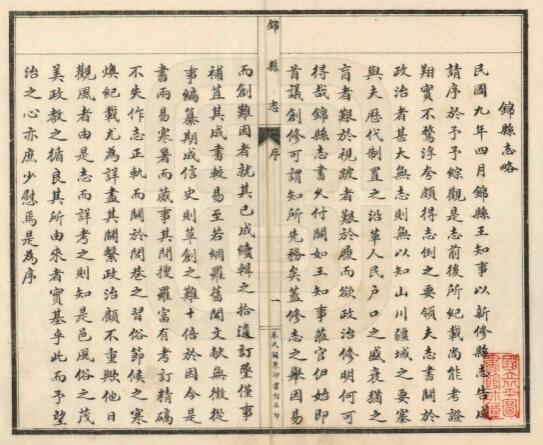 錦縣志略
民國九年四月錦縣王知事以新修縣志告成
請序於予予綜觀是志前後所紀載尚能考證
翔實不鶩浮夸頗得志例之要領夫志書關於
政治者甚大無志則無以知山川疆域之要塞
與夫歷代制置之沿革人民戶口之盛衰猶之
盲者艱於視跛者艱於履而欲政治修明何可
得哉錦縣志書久付闕如王知事蒞官伊始即
首議創修可謂知所先務矣蓋修志之舉因易
錦縣志 序 一
而創難因者就其已成續輯之拾遺訂墜僅事
補苴其成書較易至若網羅舊聞文獻無徵從
事編纂期成信史則草創之難十倍於因今是
書兩易寒暑而蕆事其間搜羅富有考訂精碻
不失作志正軌而關於閭巷之習俗節候之寒
燠紀載尤為詳盡其關繫政治顧不重歟他日
觀風者由是志而詳考之則知是邑風俗之茂
美政教之循良其所由來者實基乎此而予望
治之心亦庶少慰焉是為序